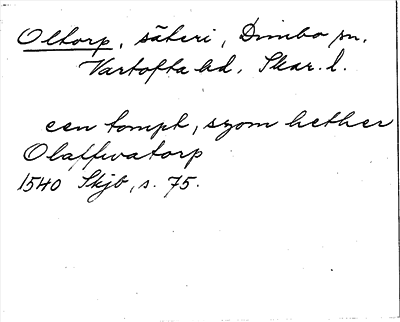 Oltorp, säteri, Dimbo sn.
Vartofta hd, Skar. l.
een tompt, szom hether
Olaffwatorp
1540 Skjb, s. 75.